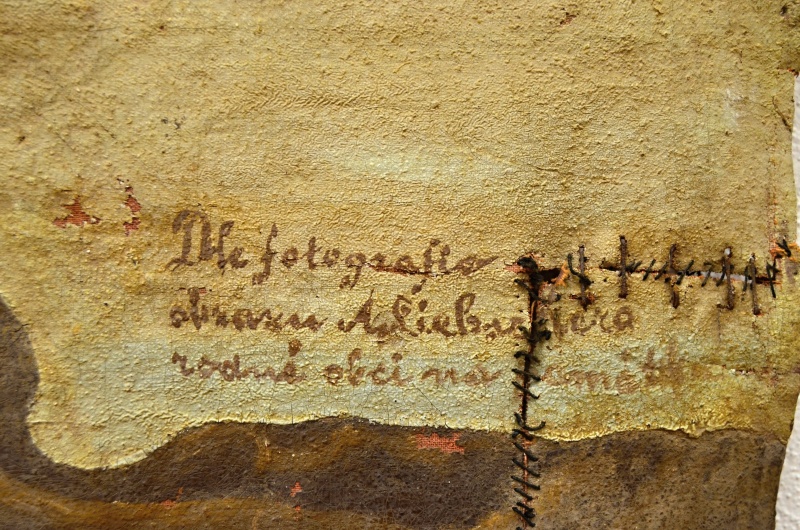 Dle fotografie
obrazu A. Liebschera
rodné obci na